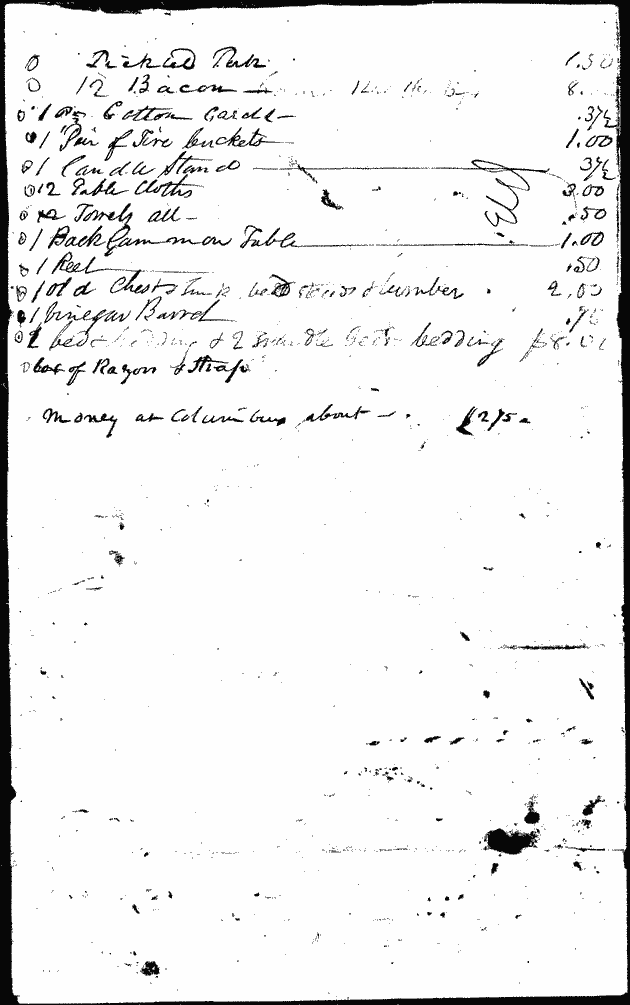 0 Pickled Pork 1.50
0 12 Bacon 8.
0 1 pr Cotton Cards .37½
0 1 Pair of Fire buckets 1.00
0 1 Candle Stand 37½
0 12 Table Cloths 3.00
0 12 Towels all .50
0 1 Back Gammon Table 1.00
0 1 Reel .50
0 1 old Chest & lumber 2.00
1 Vinegar Barrel .75
0 2 bed & bedding & 2 beds bedding $8.00
0 box of Razors & Strap
Money at Columbus about $275